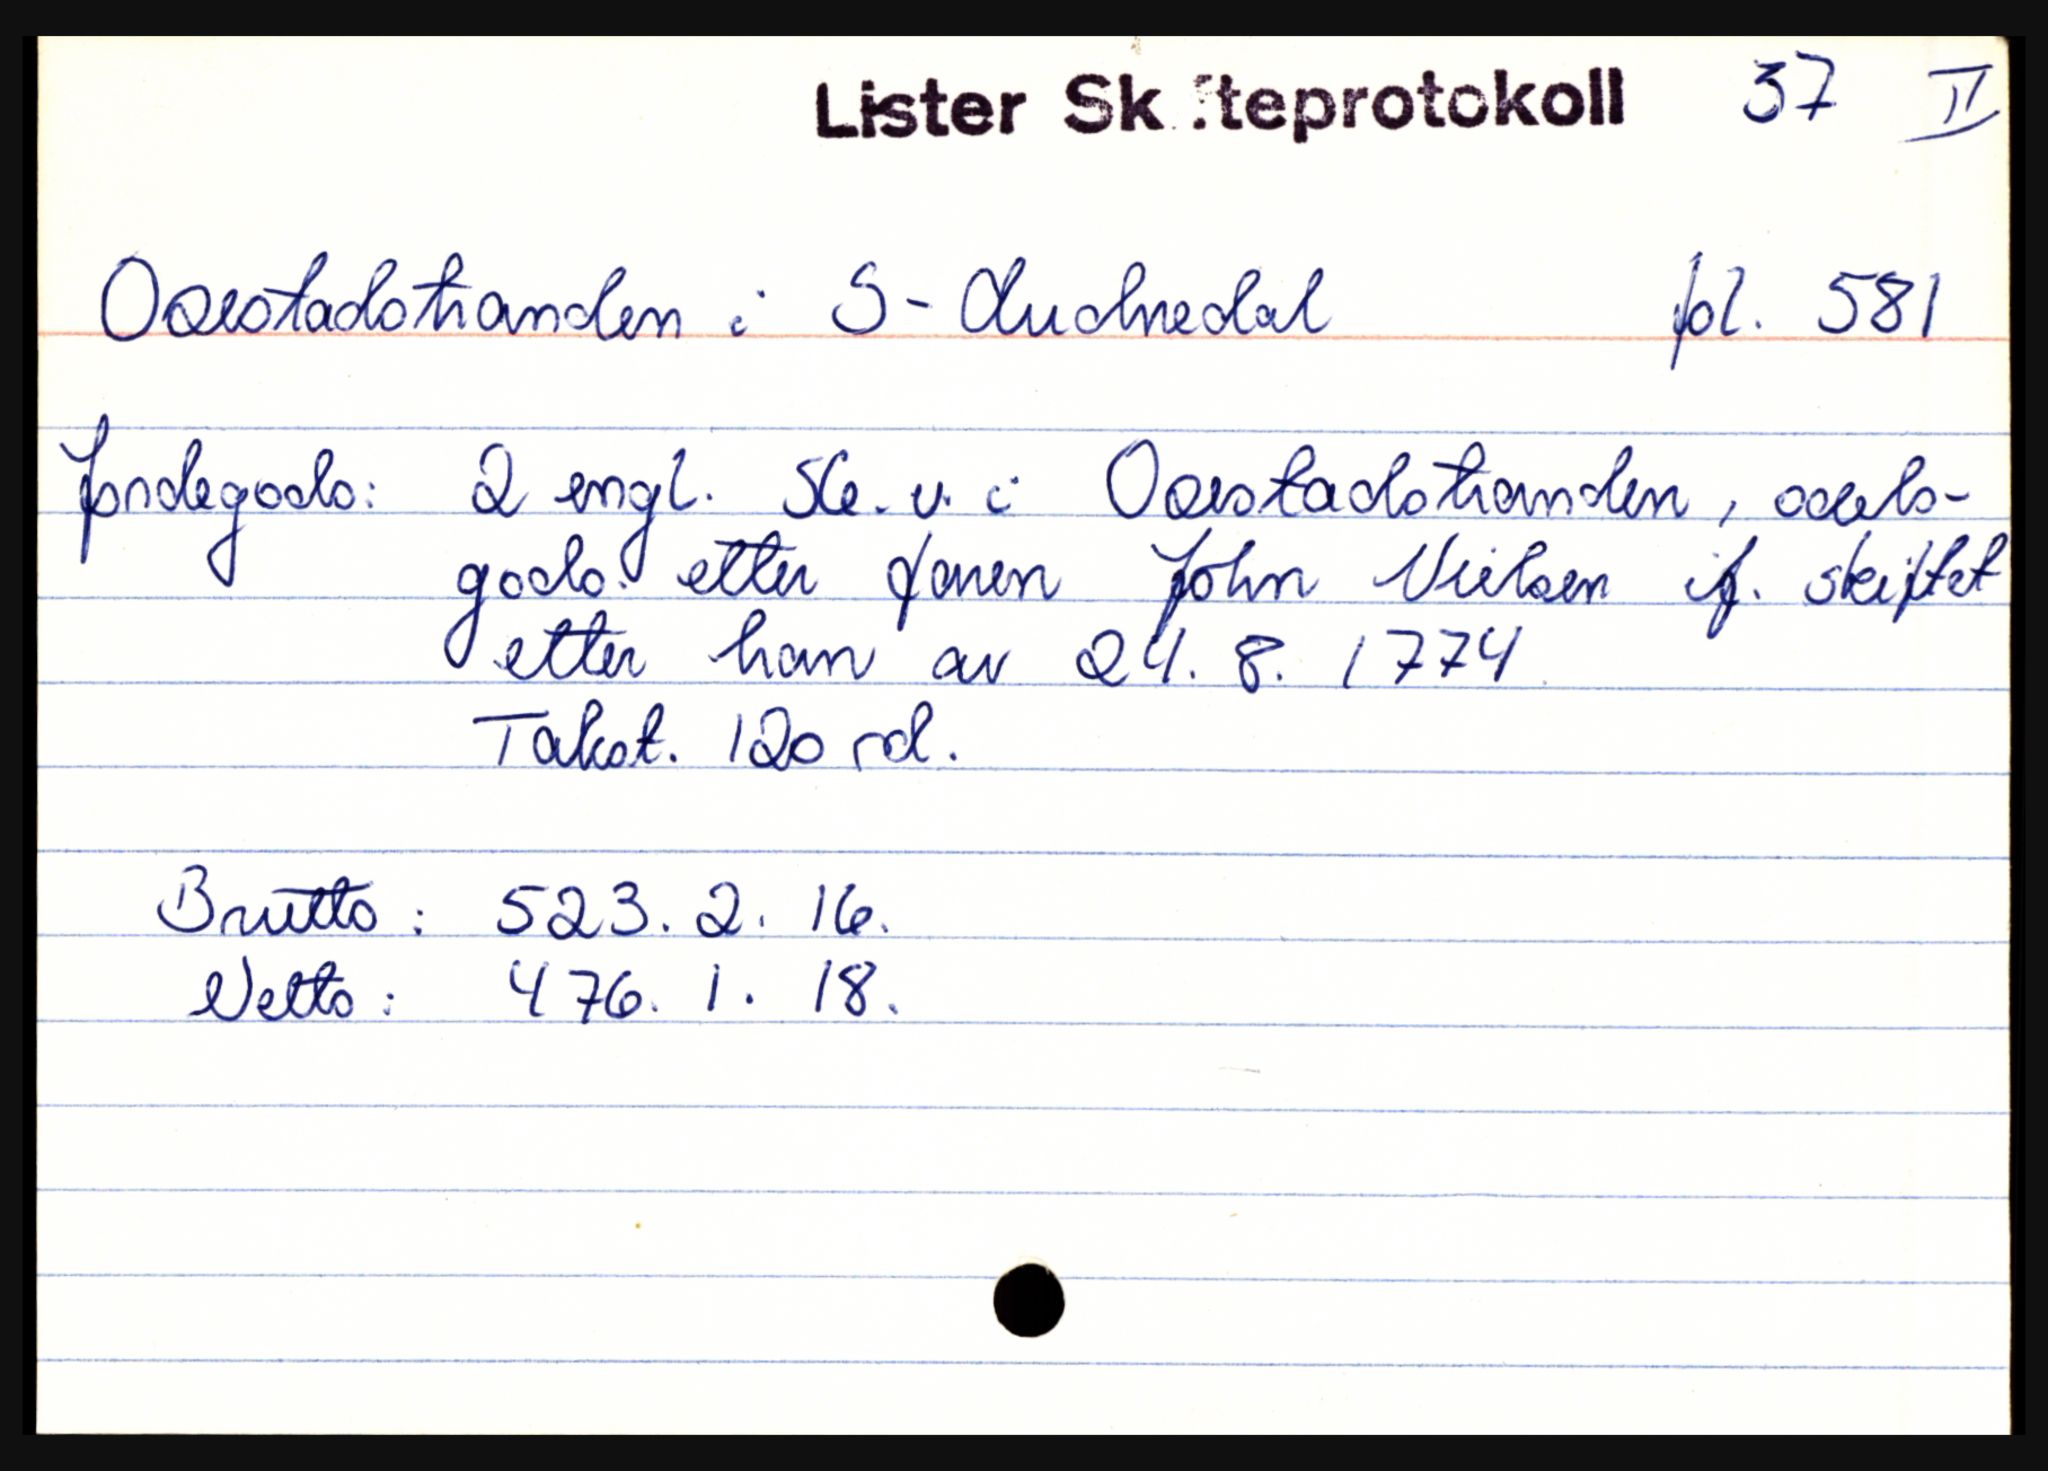 Lister Skifteprotokoll 37 II
Osestadstranden i S-Audnedal fol. 581
Jordegods: 2 engl. sk. u. i Osestadstranden, odels-
gods etter faren John Nielsen if. skiftet
etter han av 24. 8. 1774
Takst. 120 rd.
Brutto: 523. 2. 16.
Netto: 476. 1. 18.